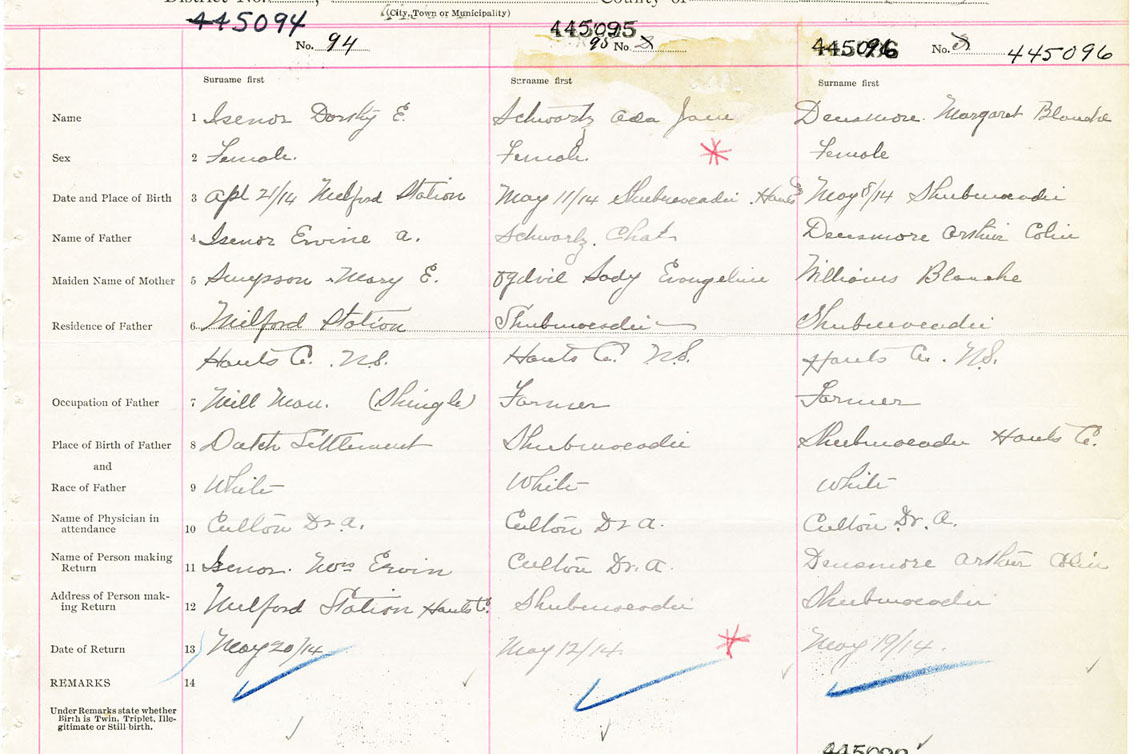 District No. County of
(City, Town or Municipality)
445094 445095 445096 445096
No. 94 95 No. No.
Surname first Surname first Surname first
Name 1 Isenor Dorothy E. Schwartz Ada Jane Densmore Margaret Blanche
Sex 2 Female. Female. Female
Date and Place of Birth 3 Apl 21/14 Milford Station May 11/14 Shubenacadie Hants Co May 8/14 Shubenacadie
Name of Father 4 Isenor Ervine A. Schwartz, Chas Densmore Arthur Colin
Maiden Name of Mother 5 Simpson Mary E. Ogdvil Sady Evangeline Williams Blanche
Residence of Father 6 Milford Station Shubenacadie Shubenacadie
Hants Co. N.S. Hants Co. N.S. Hants Co. N.S.
Occupation of Father 7 Mill Man. (Shingle) Farmer Farmer
Place of Birth of Father 8 Dutch Settlement Shubenacadie Shubenacadie Hants Co.
and
Race of Father 9 White White White
Name of Physician in
attendance 10 Culton Dr A. Culton Dr A. Culton Dr. A.
Name of Person making
Return 11 Isenor. Mrs Ervin Culton Dr. A. Densmore Arthur Colin
Address of Person mak-
ing Return 12 Milford Station Hants Co. Shubenacadie Shubenacadie
Date of Return 13 May 20/14 May 12/14. May 19/14.
REMARKS 14
Under Remarks state whether
Birth is Twin, Triplet, Ille-
gitimate or Still birth.